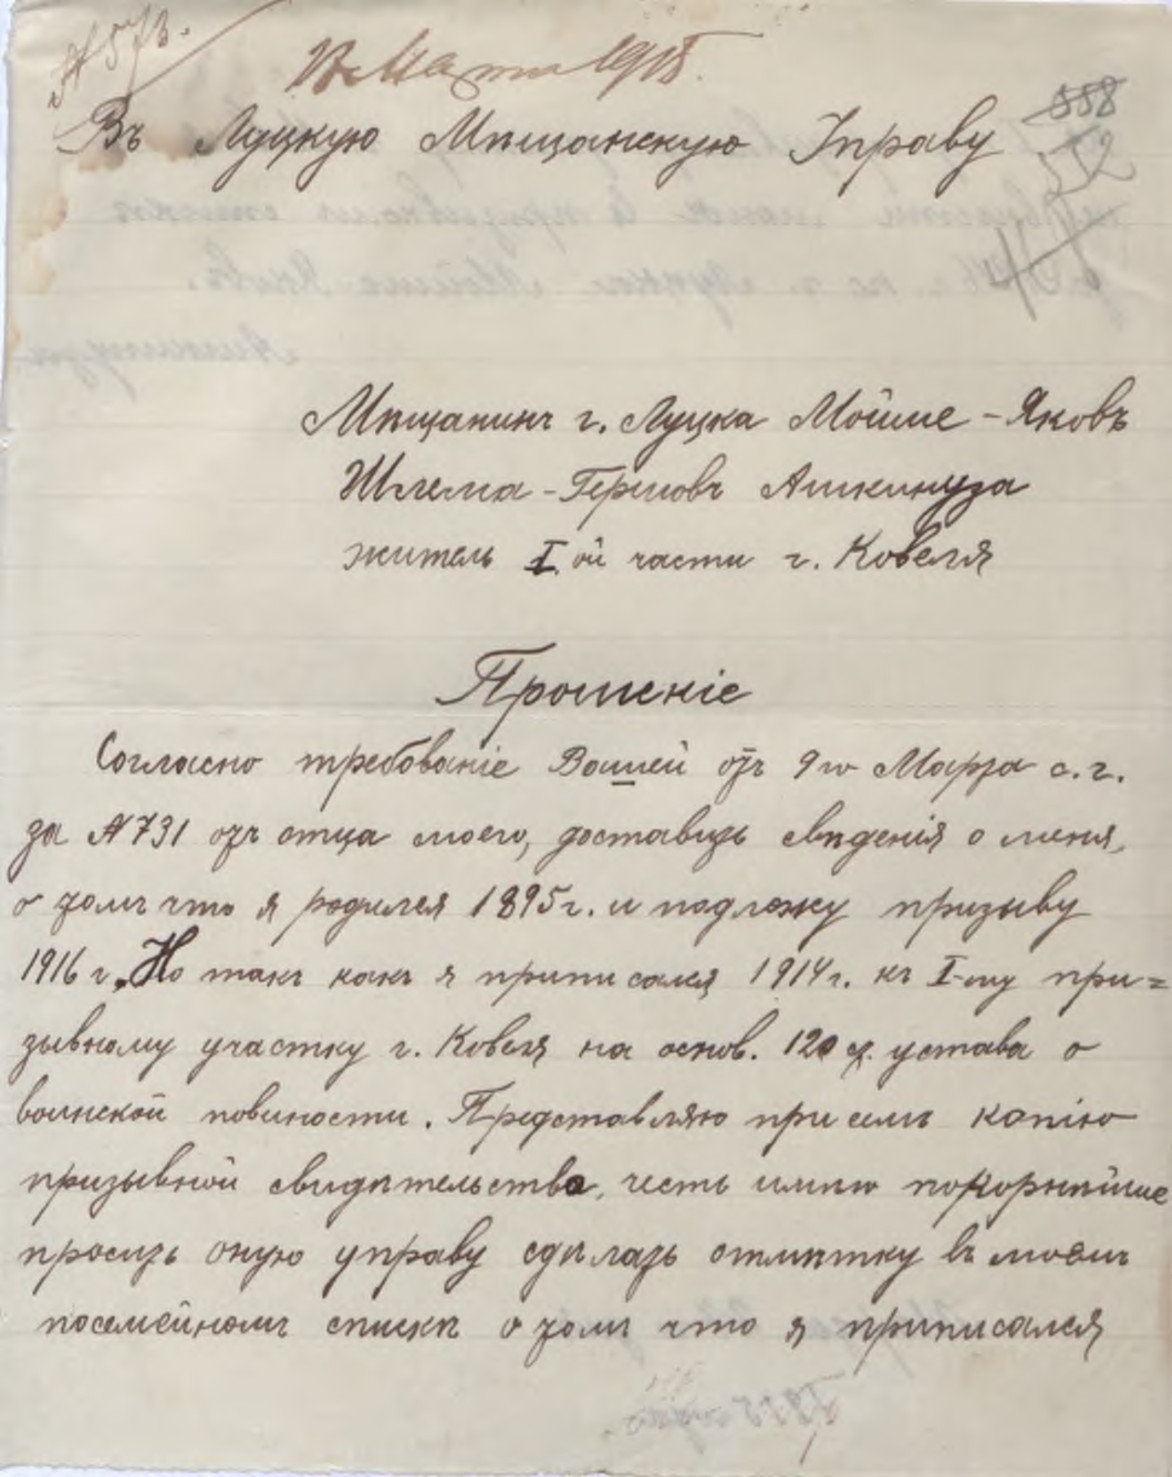 № 573.
Марта 1915.
Въ Луцкую Мѣщанскую Управу
558
Мѣщанинъ г. Луцка Мойше-Яковъ
Шлема-Гершовъ Ашкинуза
житель I ой части г. Ковеля
Прошеніе
Согласно требованіе Вашей отъ 9го Марта с. г.
за № 731 отъ отца моего, доставить свѣденія о меня,
о томъ что я родился 1895 г. и подложу призыву
1916 г. Но такъ какъ я приписался 1914 г. къ I-му при=
зывному участку г. Ковеля на основ. 120 ст. устава о
воинской повиности. Представляю при семъ копію
призывной свидѣтельства, честь имѣю покорнѣйше
просить оную управу сдѣлать отмѣтку въ моемъ
посемейномъ спискѣ о томъ что я приписался